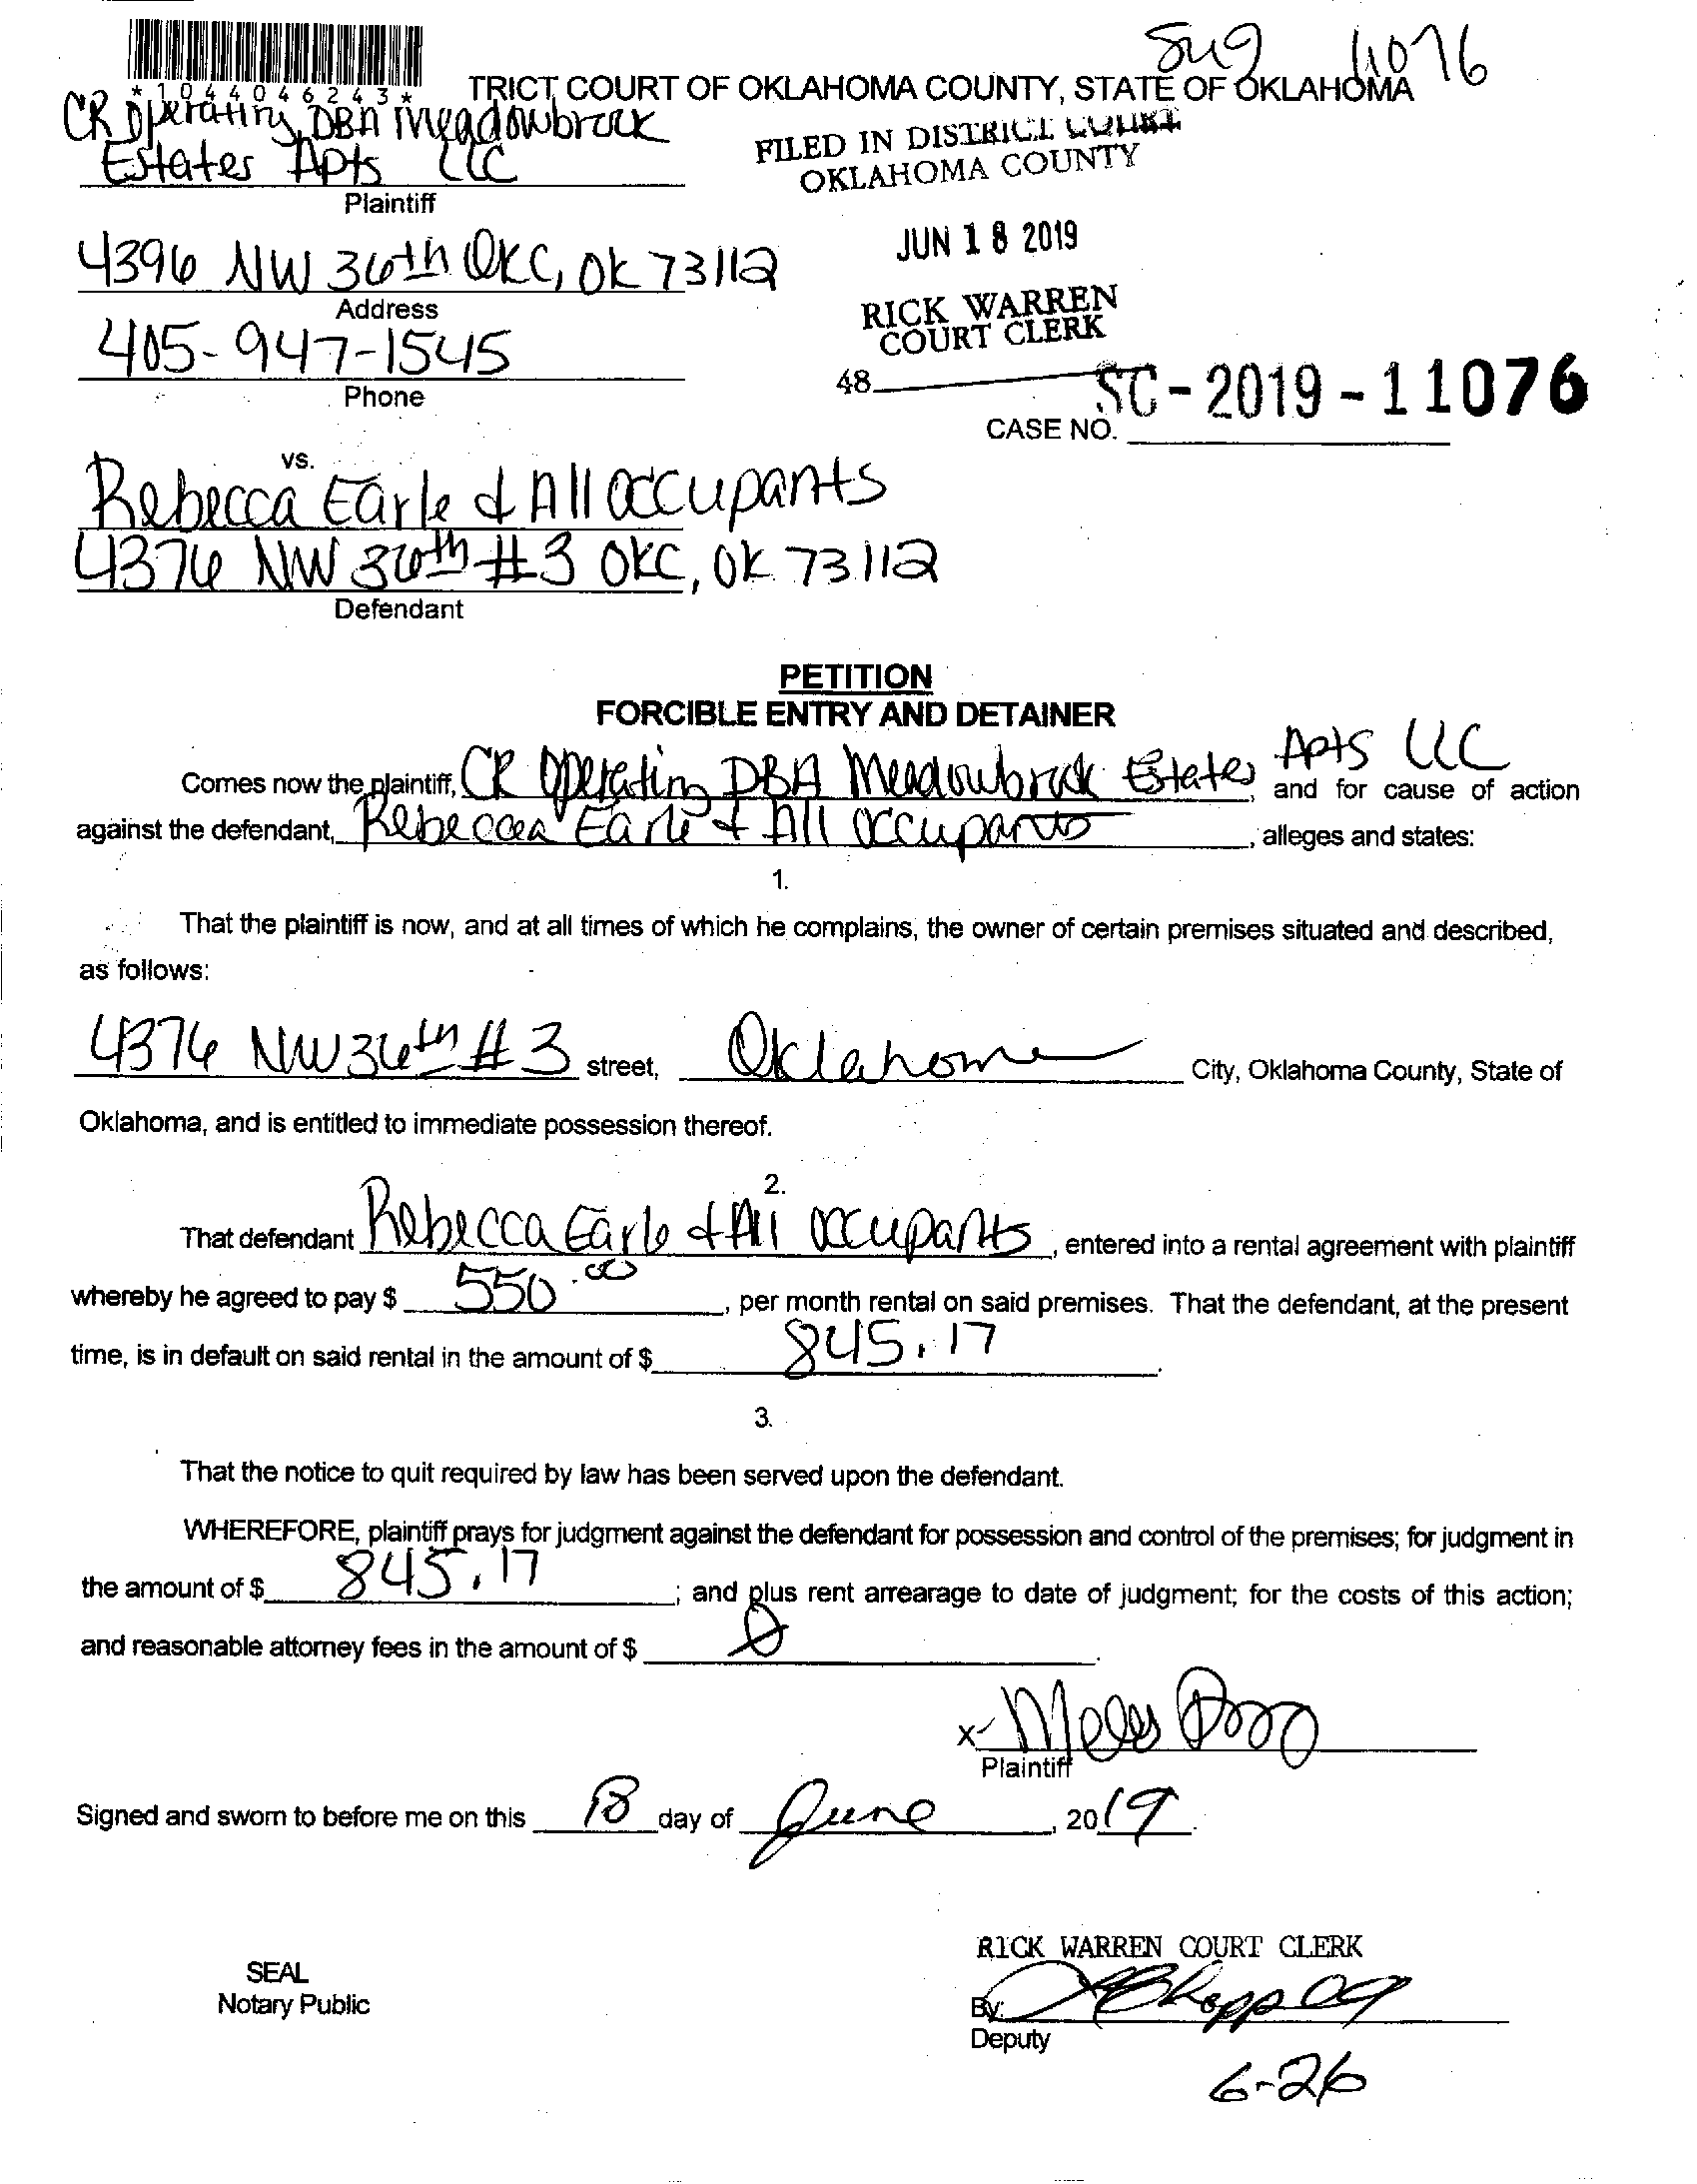 Sug 11076
*1044046243*
TRICT COURT OF OKLAHOMA COUNTY, STATE OF OKLAHOMA
CR Operating DBA Meadowbrook
Estates Apts LLC
Plaintiff
FILED IN DISTRICT COURT
OKLAHOMA COUNTY
4396 NW 36th OKC, OK 73112
Address
JUN 18 2019
405-947-1545
Phone
RICK WARREN
COURT CLERK
48
SC-2019-11076
CASE NO.
vs.
Rebecca Earle & All occupants
4376 NW 36th #3 OKC, OK 73112
Defendant
PETITION
FORCIBLE ENTRY AND DETAINER
Comes now the plaintiff, CR Operating DBA Meadowbrook Estates Apts LLC, and for cause of action
against the defendant, Rebecca Earle & All occupants, alleges and states:
1.
That the plaintiff is now, and at all times of which he complains, the owner of certain premises situated and described,
as follows:
4376 NW 36th #3 street, Oklahoma City, Oklahoma County, State of
Oklahoma, and is entitled to immediate possession thereof.
2.
That defendant Rebecca Earle & All occupants, entered into a rental agreement with plaintiff
whereby he agreed to pay $ 550.00, per month rental on said premises. That the defendant, at the present
time, is in default on said rental in the amount of $ 845.17.
3.
That the notice to quit required by law has been served upon the defendant.
WHEREFORE, plaintiff prays for judgment against the defendant for possession and control of the premises; for judgment in
the amount of $ 845.17; and plus rent arrearage to date of judgment; for the costs of this action;
and reasonable attorney fees in the amount of $ 0.
x
Plaintiff
Signed and sworn to before me on this 18 day of June, 2019.
RICK WARREN COURT CLERK
SEAL
Notary Public
By:
Deputy
6-26